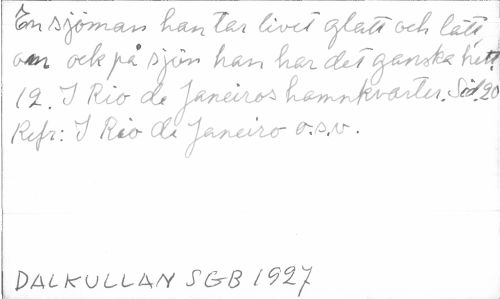 En sjöman han tar livet glatt och lätt
om ock på sjön han har det ganska hett.
12. I Rio de Janeiros hamnkvarter. Sid. 20
Refr: I Rio de Janeiro o.s.v.
DALKULLAN SGB 1927